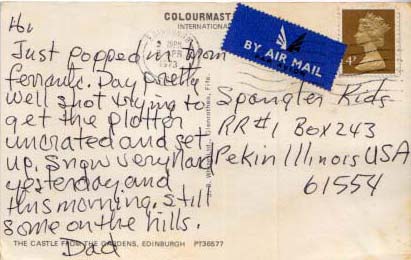 COLOURMAST
INTERNATIONAL
BY AIR MAIL
1973
4P
Hi,
Just popped in from
Ferranti. Day pretty
well shot trying to
get the plotter
uncrated and set
up. Snow very hard
yesterday and
this morning, still
some on the hills.
Dad
Spangler Kids
RR#1 Box 243
Pekin Illinois USA
61554
THE CASTLE FROM THE GARDENS, EDINBURGH PT36577